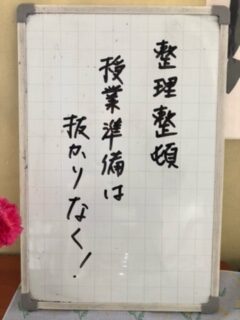 整理整頓
授業準備は
抜かりなく！